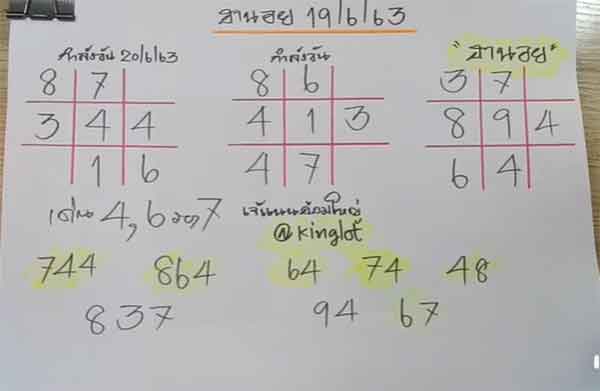 ฮานอย 19/6/63
กำลังวัน 20/6/63
8 7
3 4 4
1 6
กำลังวัน
8 6
4 1 3
4 7
"ฮานอย"
3 7
8 9 4
6 4
เด่น 4, 6 รอง 7
@kinglot
744 864 64 74 48
837 94 67